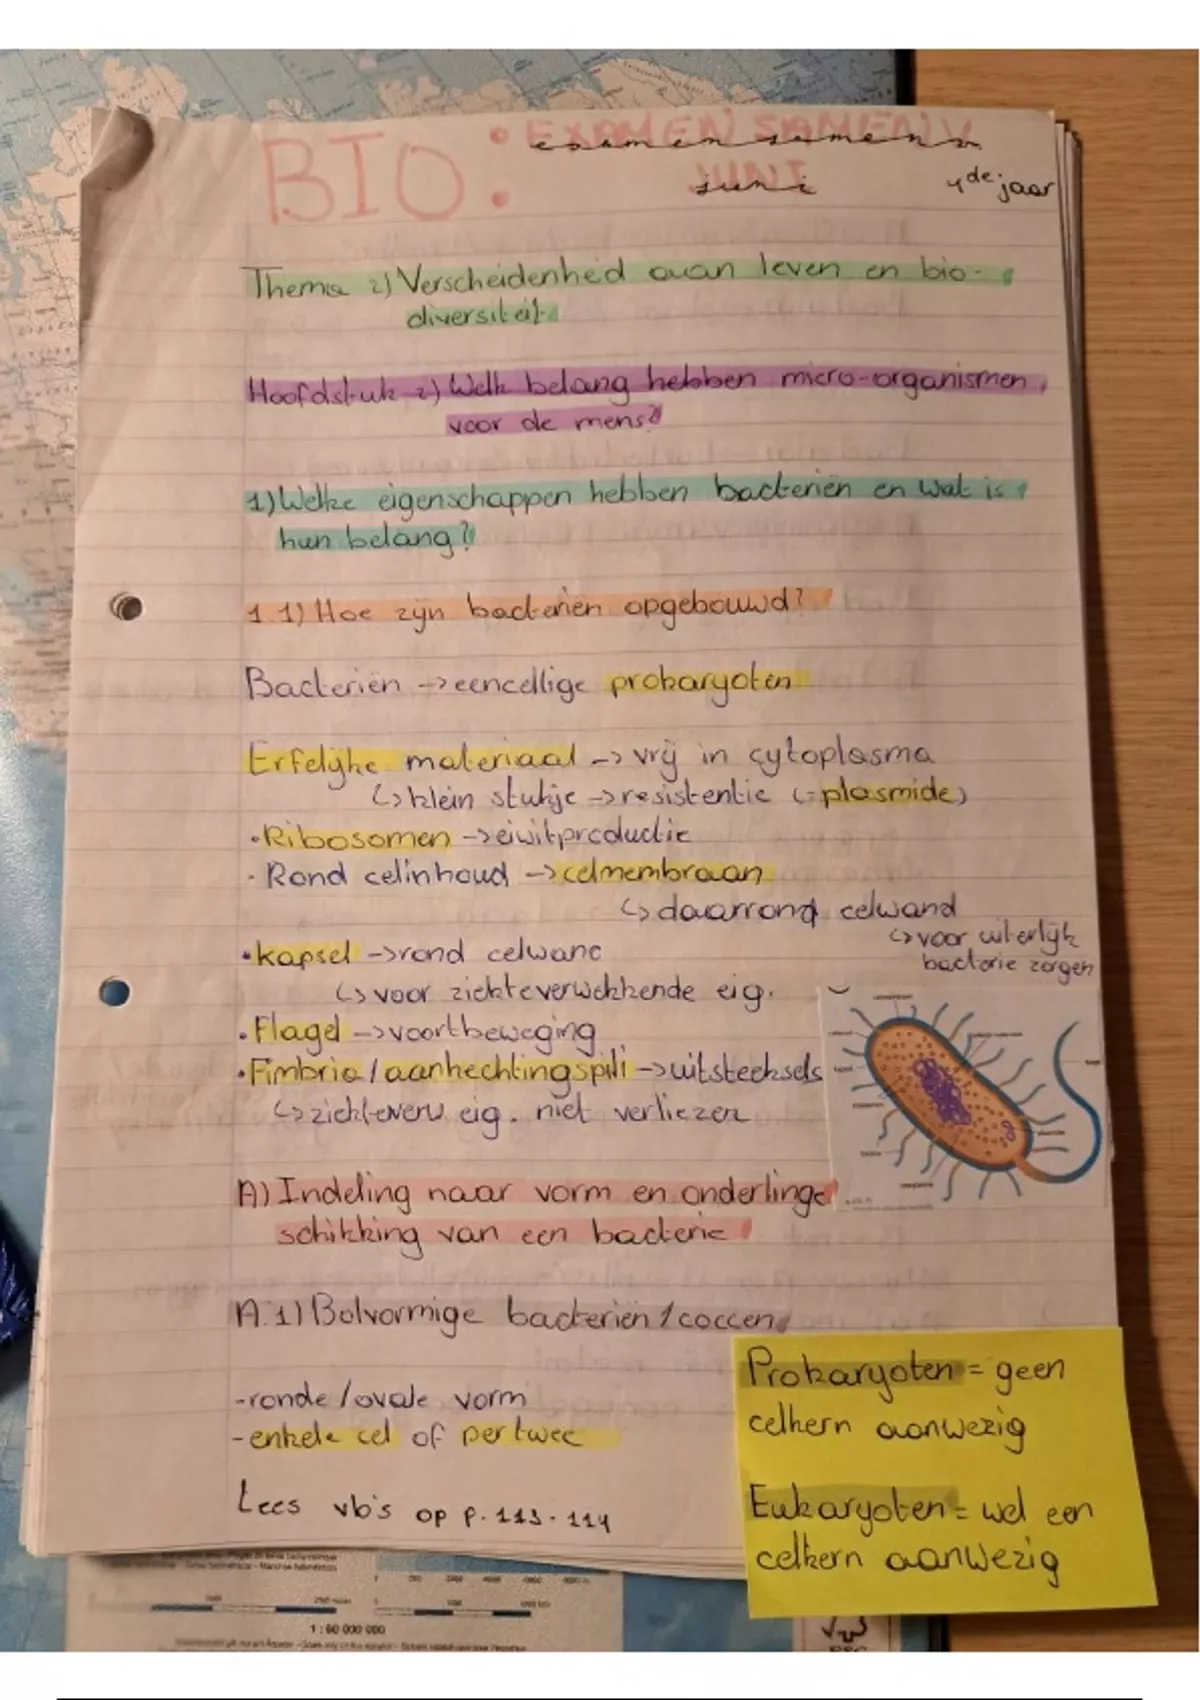 BIO: EXAMEN SAMENV
examen samenv
JUNI
juni
4de jaar
Thema 2) Verscheidenheid aan leven en bio-
diversiteit
Hoofdstuk 2) Welk belang hebben micro-organismen
voor de mens?
1) Welke eigenschappen hebben bacteriën en wat is
hun belang?
1.1) Hoe zijn bacteriën opgebouwd?
Bacteriën -> eencellige prokaryoten
Erfelijke materiaal -> vrij in cytoplasma
↳ klein stukje -> resistentie (= plasmide)
• Ribosomen -> eiwitproductie
• Rond celinhoud -> celmembraan
↳ daarrond celwand
↳ voor uiterlijk
bacterie zorgen
• kapsel -> rond celwand
↳ voor ziekteverwekkende eig.
• Flagel -> voortbeweging
• Fimbria / aanhechtingspili -> uitsteeksels
↳ ziekteverw eig. niet verliezen
A) Indeling naar vorm en onderlinge
schikking van een bacterie
A.1) Bolvormige bacteriën / coccen
- ronde / ovale vorm
- enkele cel of per twee
Lees vb's op p. 113-114
Prokaryoten = geen
celkern aanwezig
Eukaryoten = wel een
celkern aanwezig
1 : 60 000 000